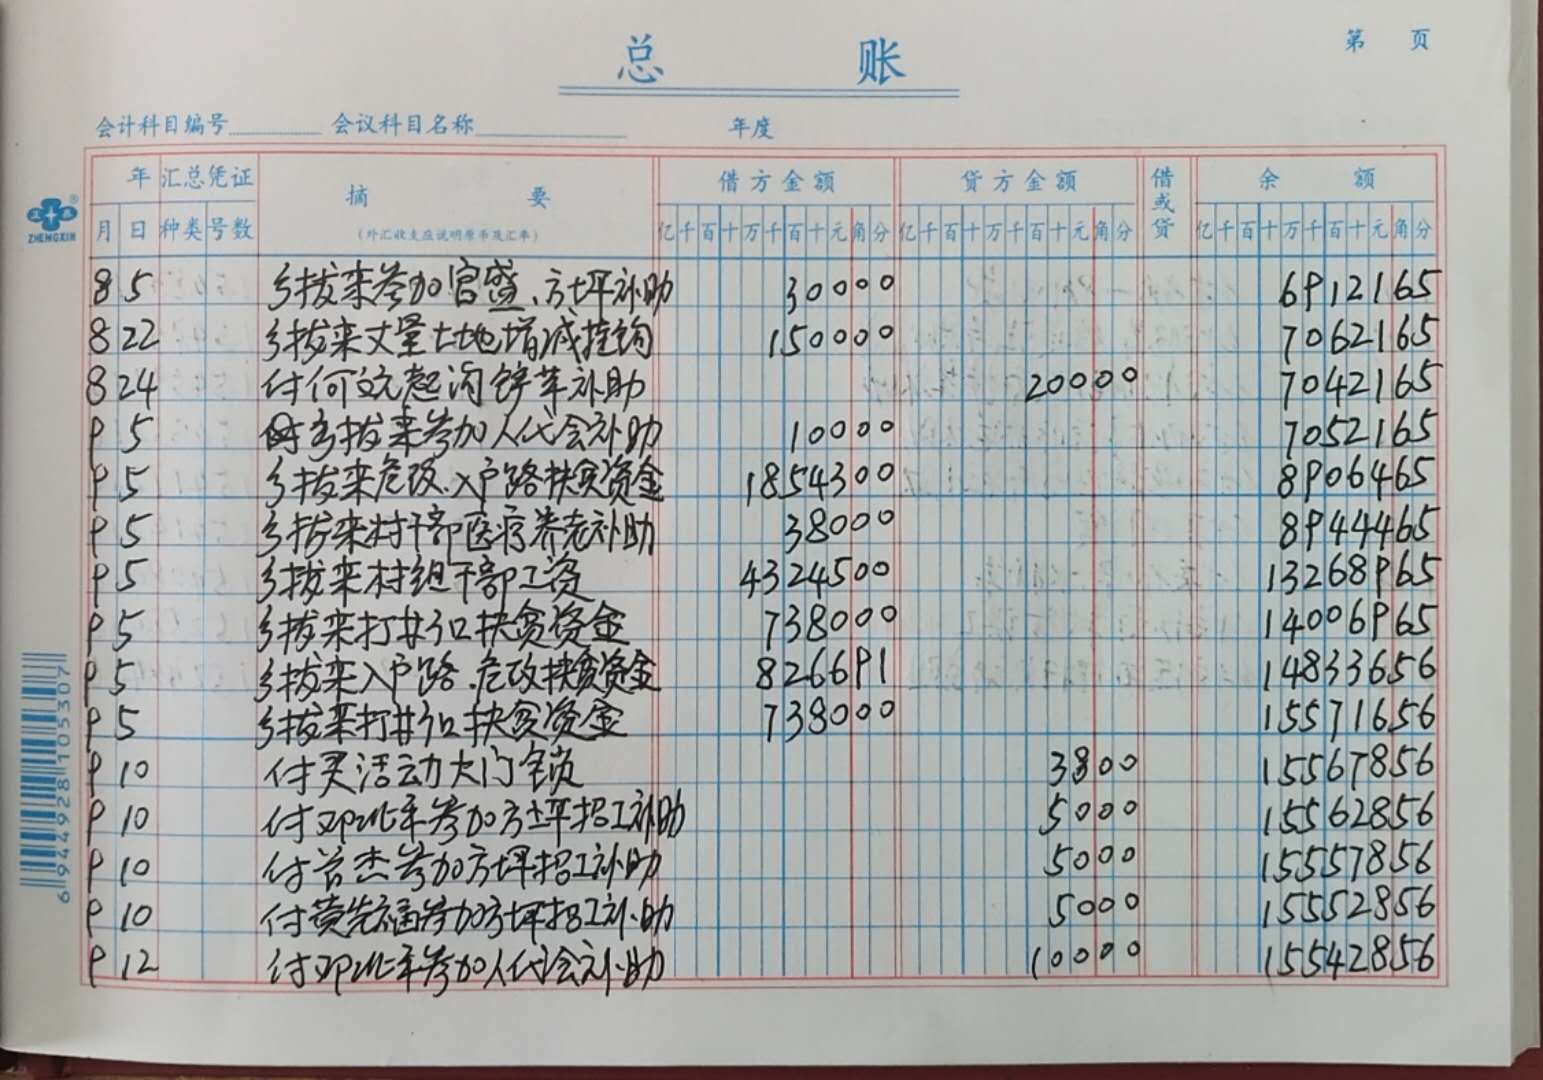 总 账
第 页
会计科目编号 会议科目名称 年度
年 汇总凭证 摘 要 借方金额 贷方金额 借或贷 余 额
(外汇收支应说明原币及汇率)
月 日 种类 号数 亿千百十万千百十元角分 亿千百十万千百十元角分 亿千百十万千百十元角分
ZHENGXIN
8 5 乡拔来参加官盛、方坪补助 30000 6912165
8 22 乡拔来丈量土地增减挂钩 150000 7062165
8 24 付何文起沟铲草补助 20000 7042165
9 5 乡拔来参加人代会补助 10000 7052165
9 5 乡拔来危改.入户路扶贫资金 1854300 8906465
9 5 乡拔来村干部医疗养老补助 38000 8944465
9 5 乡拔来村组干部工资 4324500 13268965
9 5 乡拔来打井扶贫资金 738000 14006965
9 5 乡拔来入户路.危改扶贫资金 826691 14833656
9 5 乡拔来打井扶贫资金 738000 15571656
9 10 付买活动大门锁 3800 15567856
9 10 付邓 参加方坪招工补助 5000 15562856
9 10 付 杰参加方坪招工补助 5000 15557856
9 10 付黄先福参加方坪招工补助 5000 15552856
9 12 付邓 参加人代会补助 10000 15542856
6944928105307